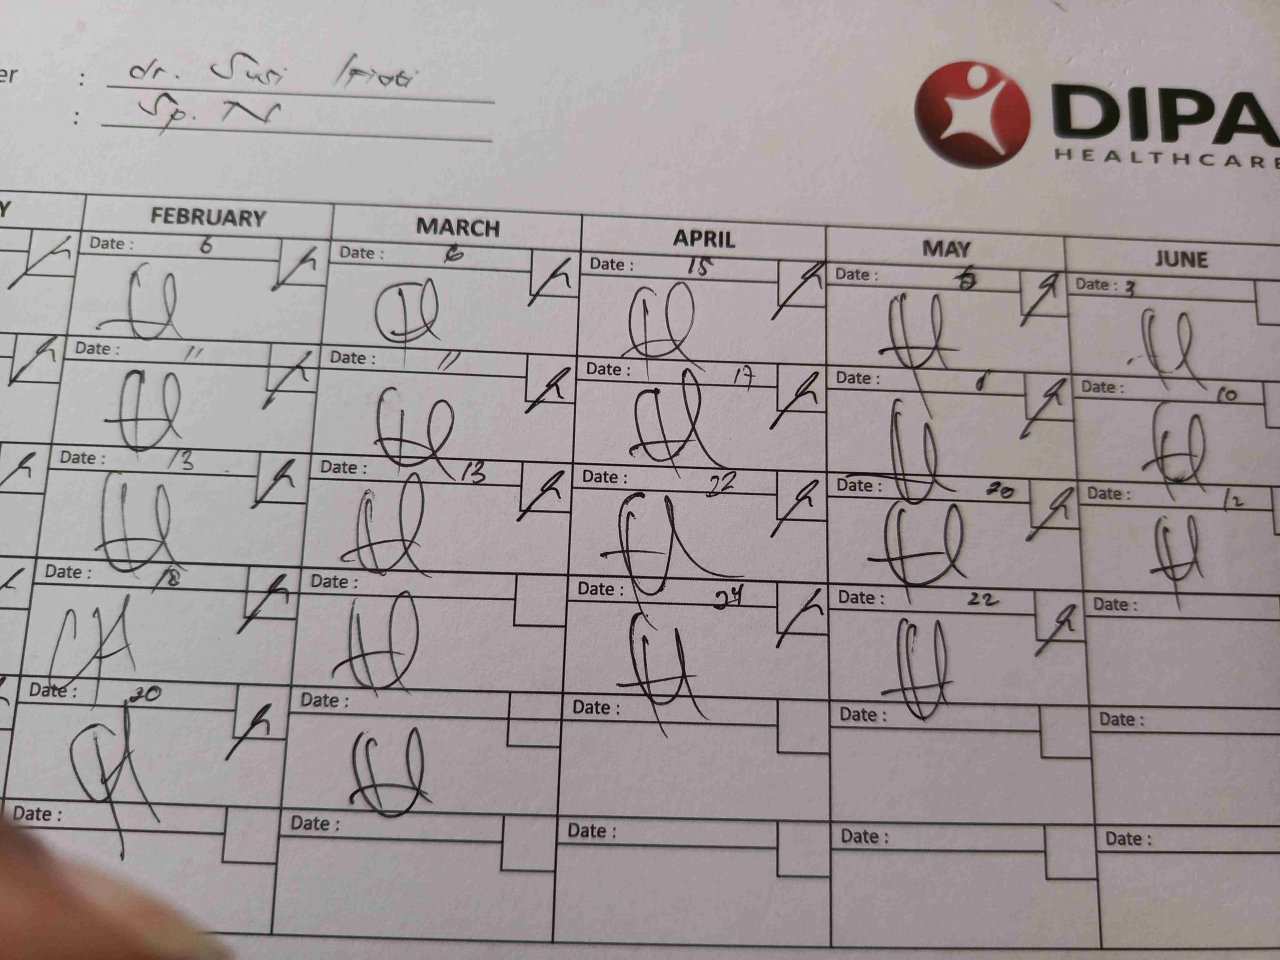 er : dr. Susi
: Sp. N
DIPA
HEALTHCARE
Y FEBRUARY MARCH APRIL MAY JUNE
Date : 6 Date : 6 Date : 15 Date : Date : 3
Date : 11 Date : 11 Date : 17 Date : Date : 10
Date : 13 Date : 13 Date : 22 Date : 20 Date : 12
Date : 18 Date : Date : 24 Date : 22 Date :
Date : 20 Date : Date : Date : Date :
Date : Date : Date : Date : Date :